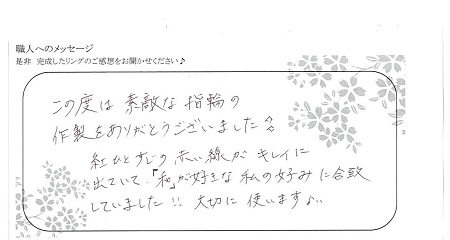 職人へのメッセージ
是非 完成したリングのご感想をお聞かせください♪
この度は 素敵な指輪の
作製をありがとうございました
紅ひとすじの 赤い線が キレイに
出ていて、「和」が好きな 私の好みに合致
していました!! 大切に 使います♪..